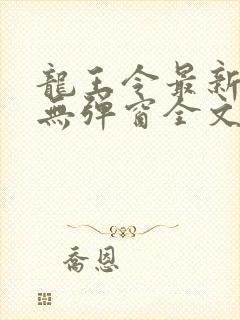 龍王令最新
無彈窗全文
喬恩